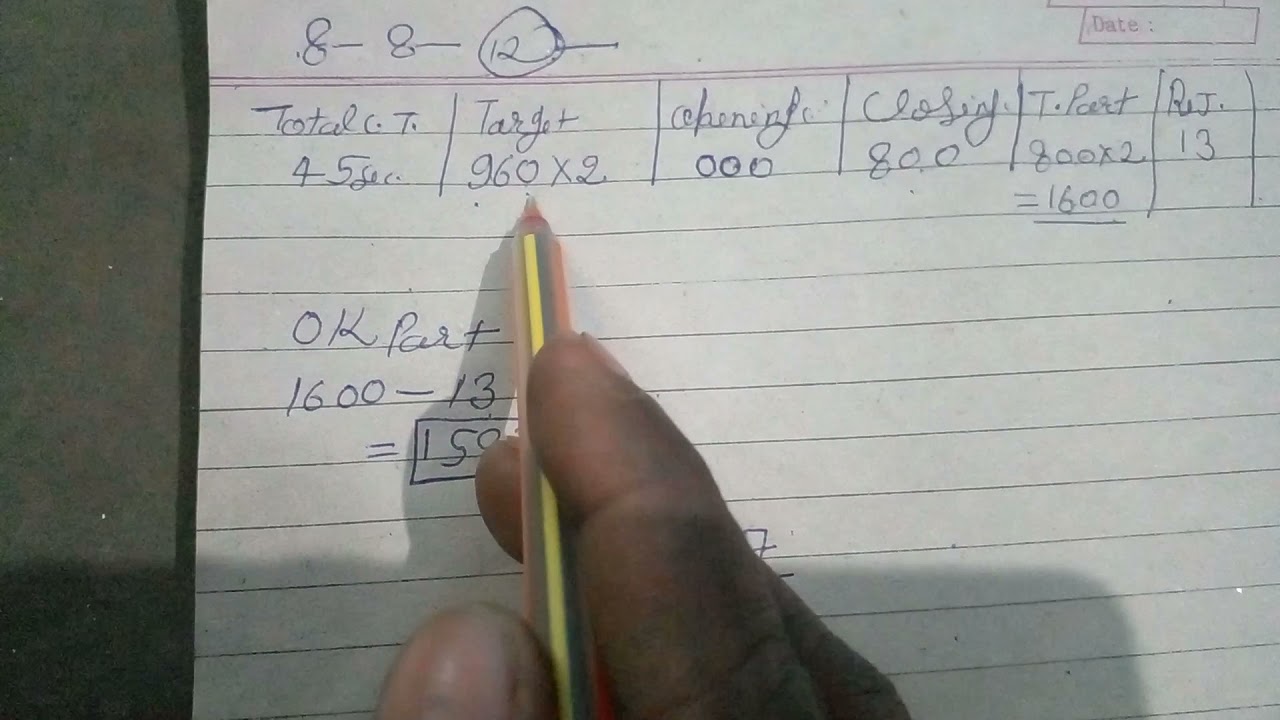 8 — 8 — 12 —
Date :
Total C.T. Target Opening Closing T. Part RJ.
45sec. 960×2 000 800 800×2 13
=1600
OK Part
1600 — 13
=
7